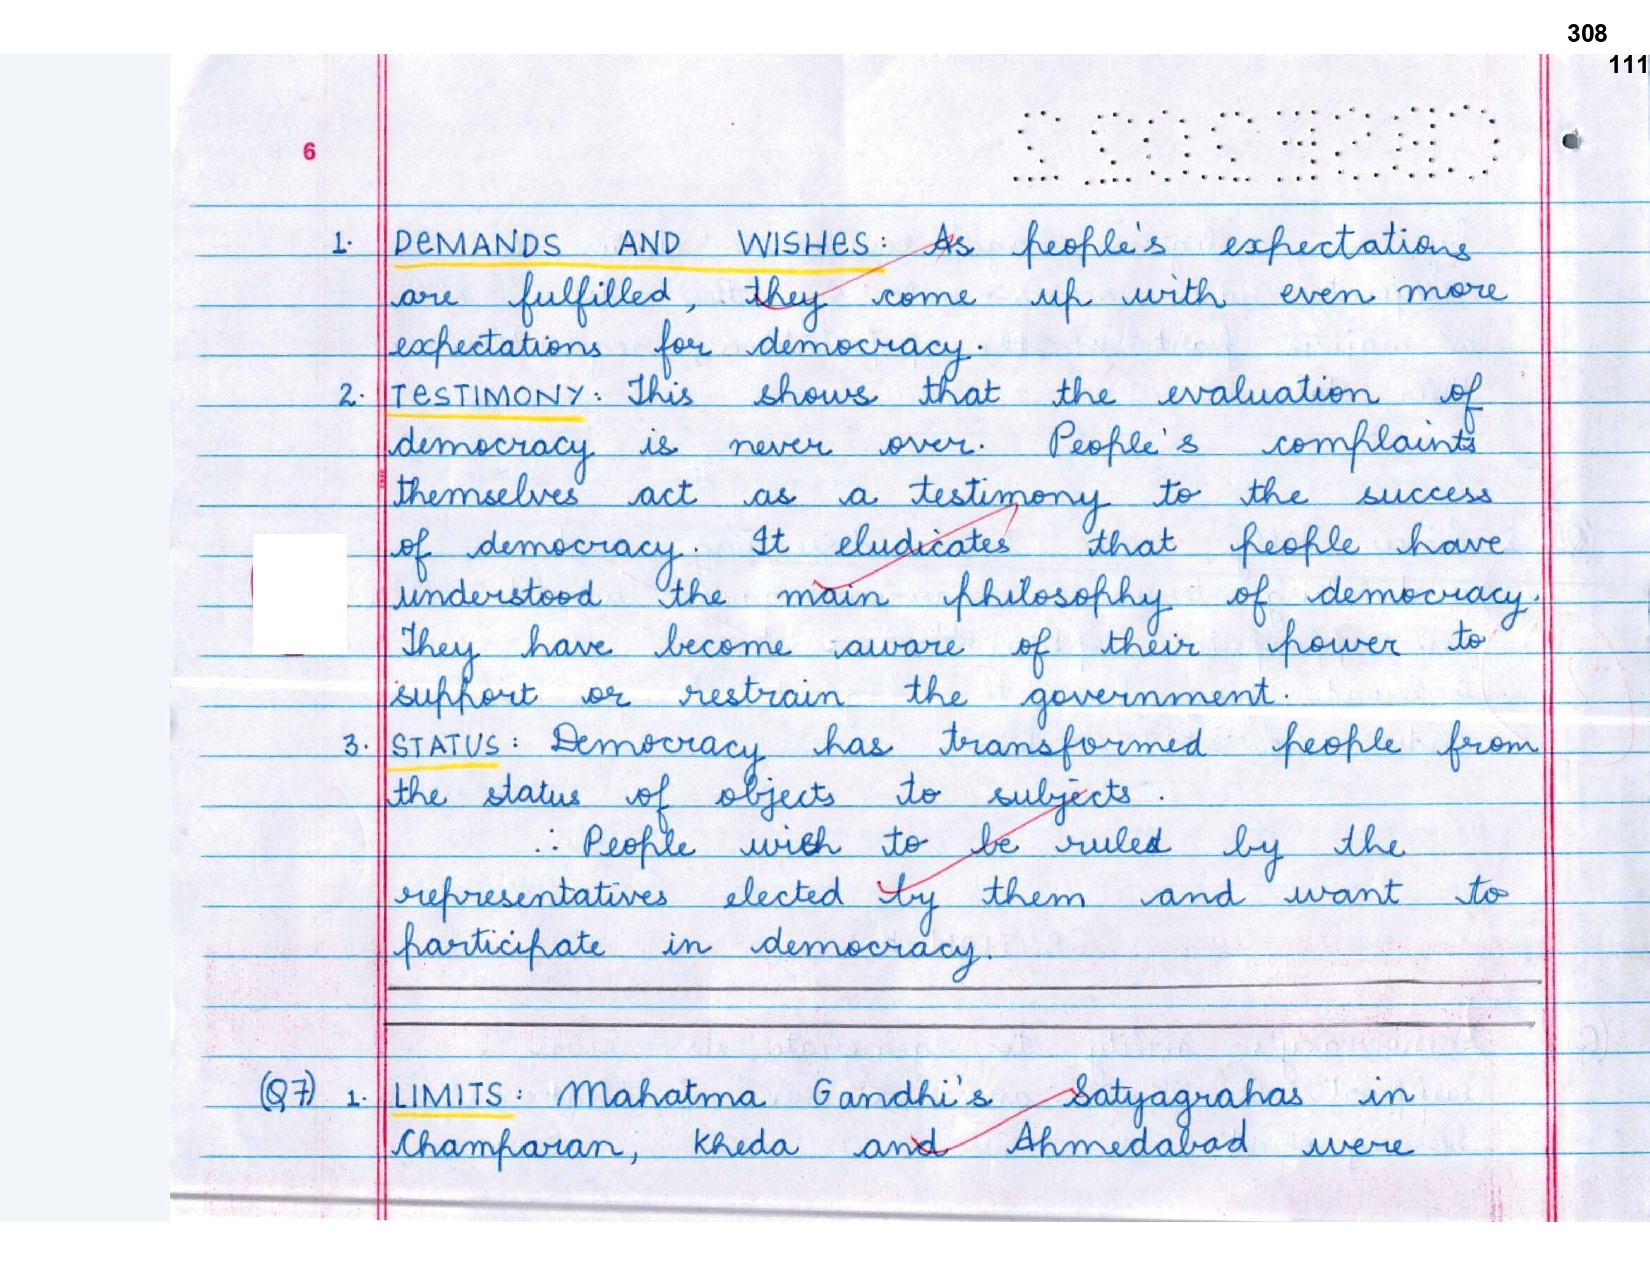 308
111
6
1. DEMANDS AND WISHES: As people's expectations
are fulfilled, they come up with even more
expectations for democracy.
2. TESTIMONY: This shows that the evaluation of
democracy is never over. People's complaints
themselves act as a testimony to the success
of democracy. It eludicates that people have
understood the main philosophy of democracy.
They have become aware of their power to
support or restrain the government.
3. STATUS: Democracy has transformed people from
the status of objects to subjects.
∴ People wish to be ruled by the
representatives elected by them and want to
participate in democracy.
(Q7) 1. LIMITS: Mahatma Gandhi's Satyagrahas in
Champaran, Kheda and Ahmedabad were